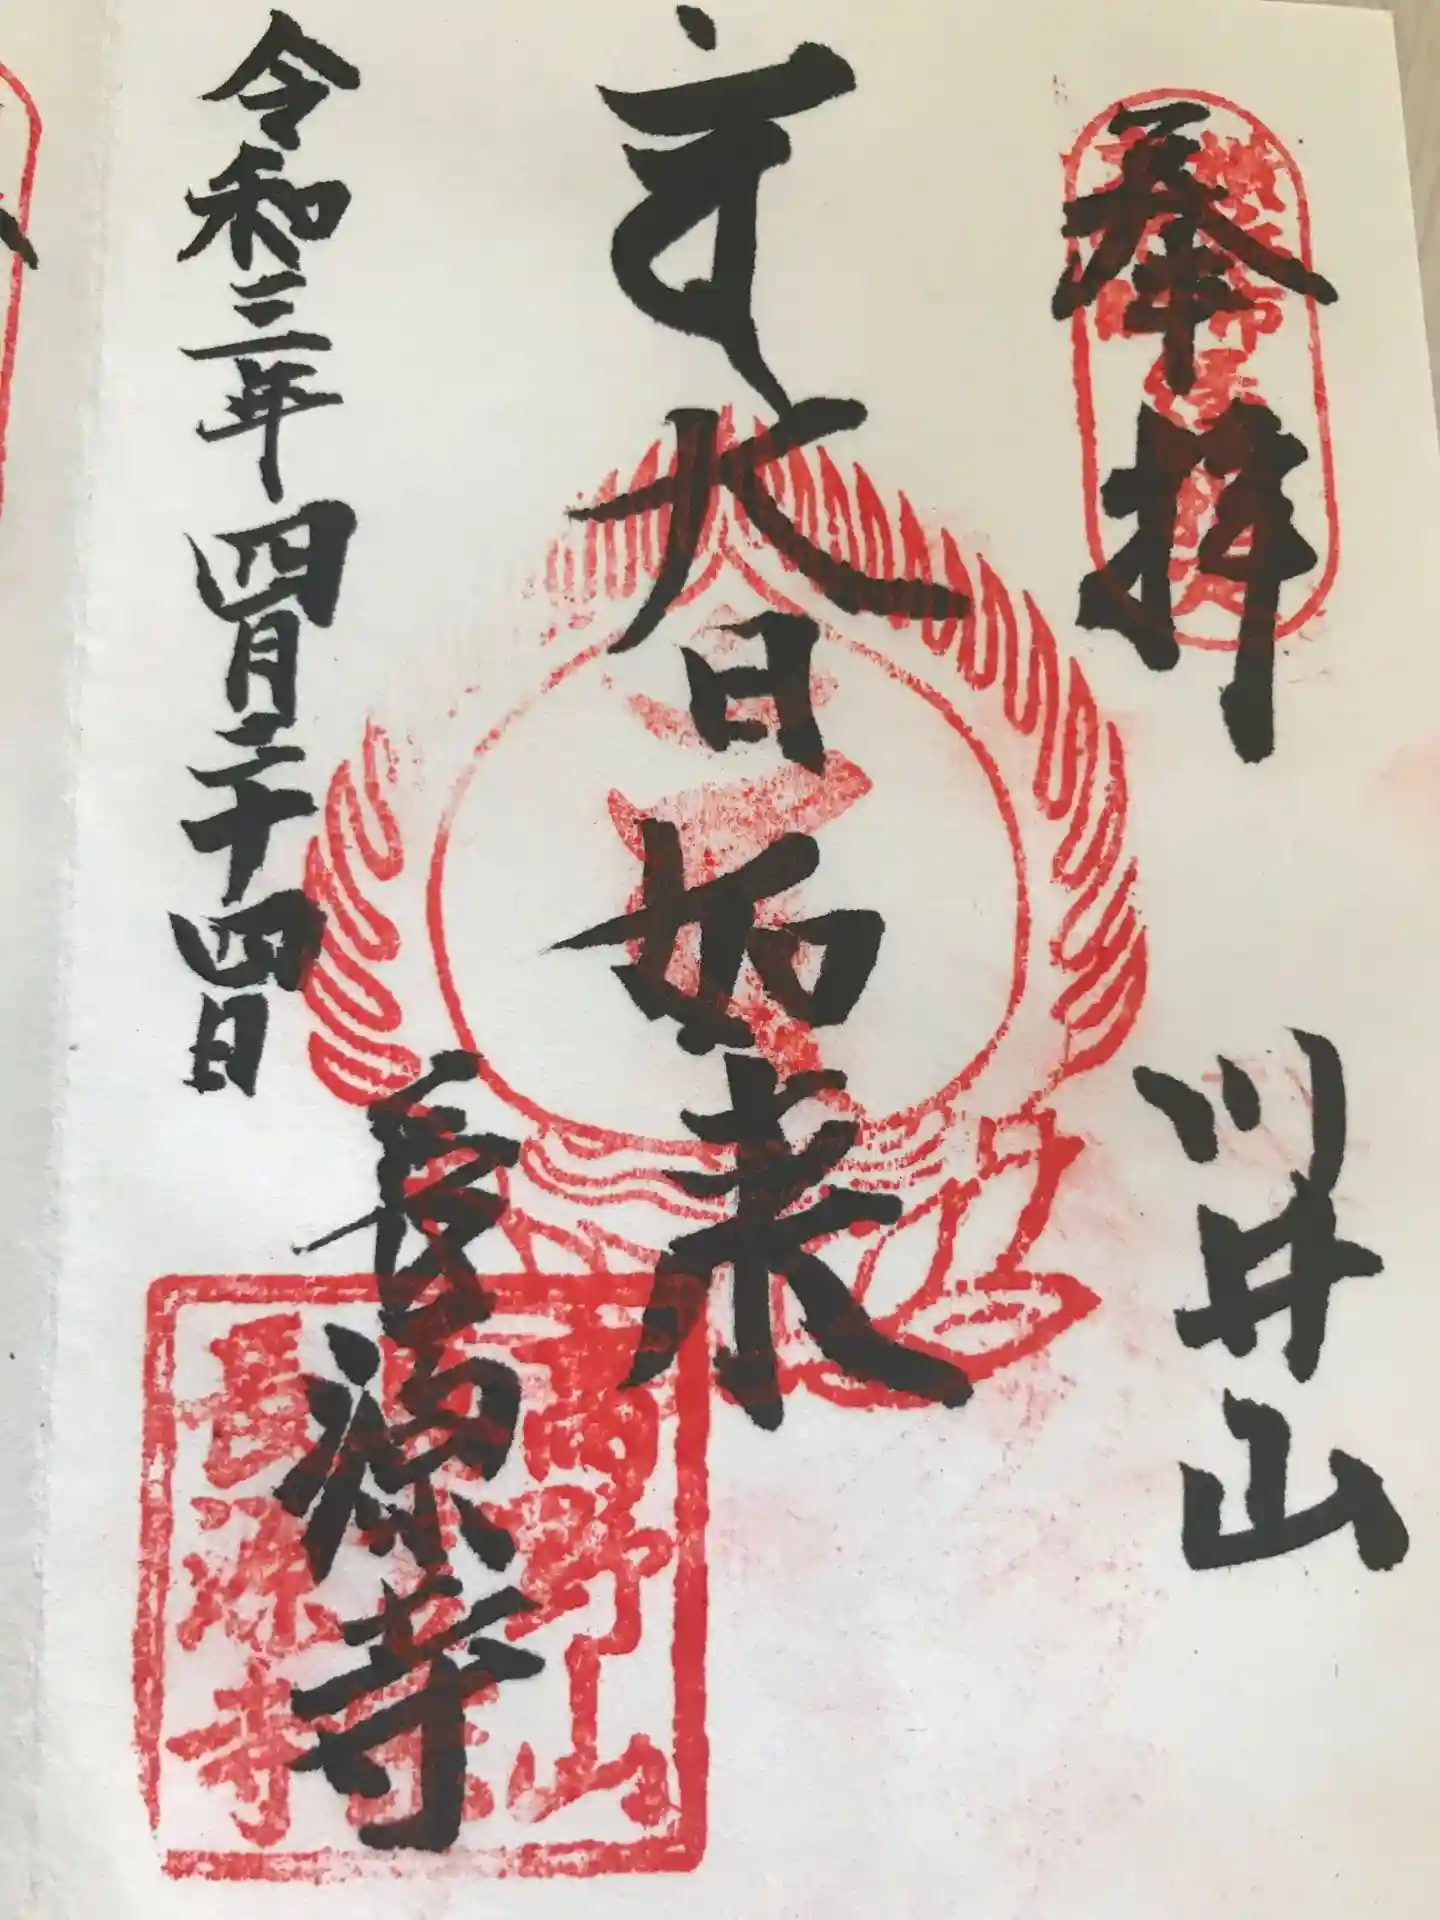 奉拝
川井山
大日如来
令和三年四月二十四日
長源寺
高野山
長源寺